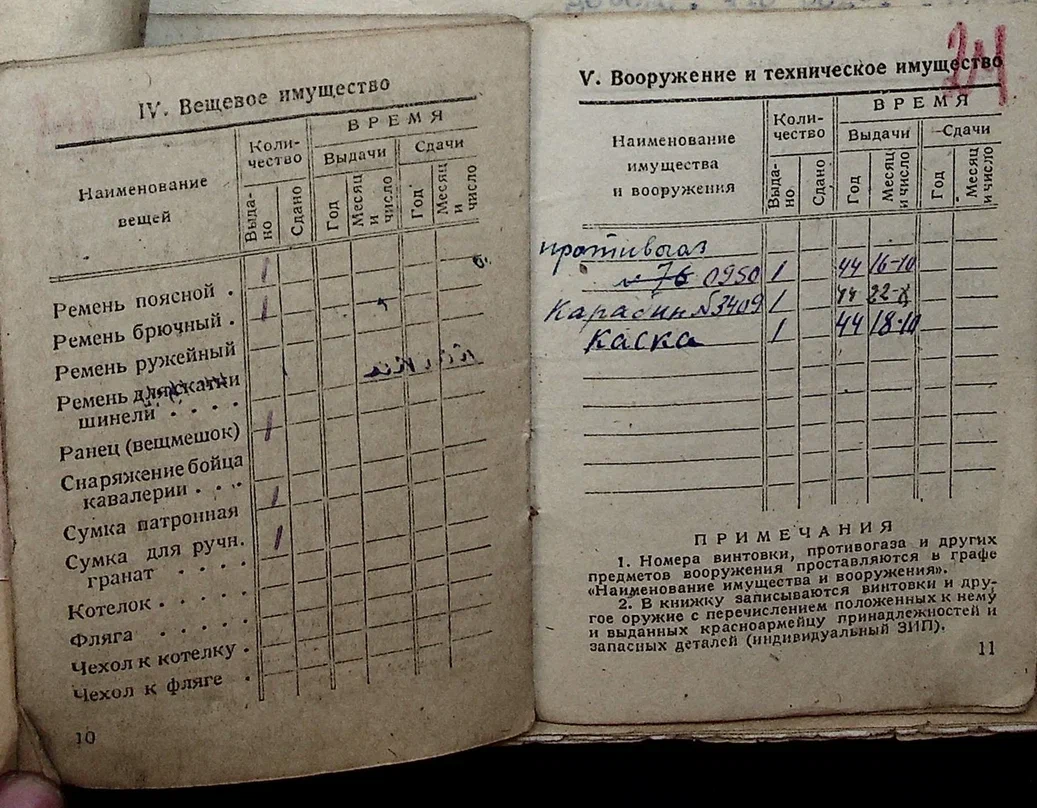 IV. Вещевое имущество
Наименование
вещей
Коли-
чество
ВРЕМЯ
Выдачи
Сдачи
Выда-
но
Сдано
Год
Месяц
и
число
Год
Месяц
и
число
Ремень поясной . 1
Ремень брючный . 1
Ремень ружейный
Ремень для скатки
шинели . . . .
Ранец (вещмешок) 1
Снаряжение бойца
кавалерии . . .
Сумка патронная 1
Сумка для ручн.
гранат . . . . 1
Котелок . . . . .
Фляга . . . . .
Чехол к котелку .
Чехол к фляге .
10
24
V. Вооружение и техническое имущество
Наименование
имущества
и вооружения
Коли-
чество
ВРЕМЯ
Выдачи
Сдачи
Выда-
но.
Сдано
Год
Месяц
и число
Год
Месяц
и число
противогаз
0950 1 44 16-10
Карабин №3409 1 44
Каска 1 44 18-10
ПРИМЕЧАНИЯ
1. Номера винтовки, противогаза и других
предметов вооружения проставляются в графе
«Наименование имущества и вооружения».
2. В книжку записываются винтовки и дру-
гое оружие с перечислением положенных к нему
и выданных красноармейцу принадлежностей и
запасных деталей (индивидуальный ЗИП).
11